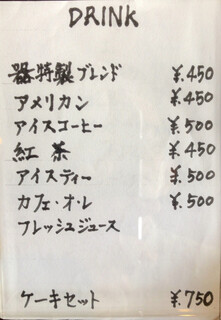 DRINK
器特製ブレンド ¥.450
アメリカン ¥.450
アイスコーヒー ¥.500
紅茶 ¥.450
アイスティー ¥.500
カフェ・オ・レ ¥.500
フレッシュジュース
ケーキセット ¥.750